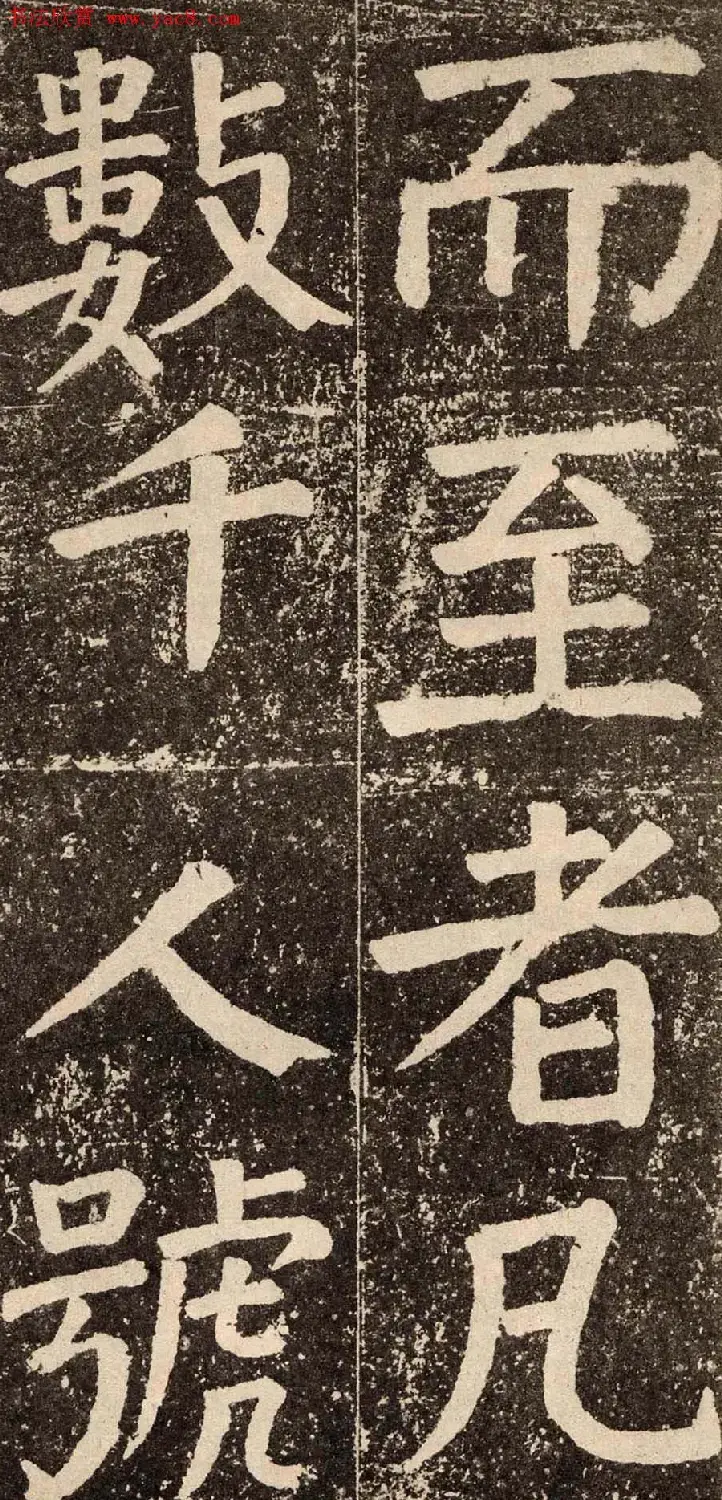 www.yac8.com
而至者凡
數千人號